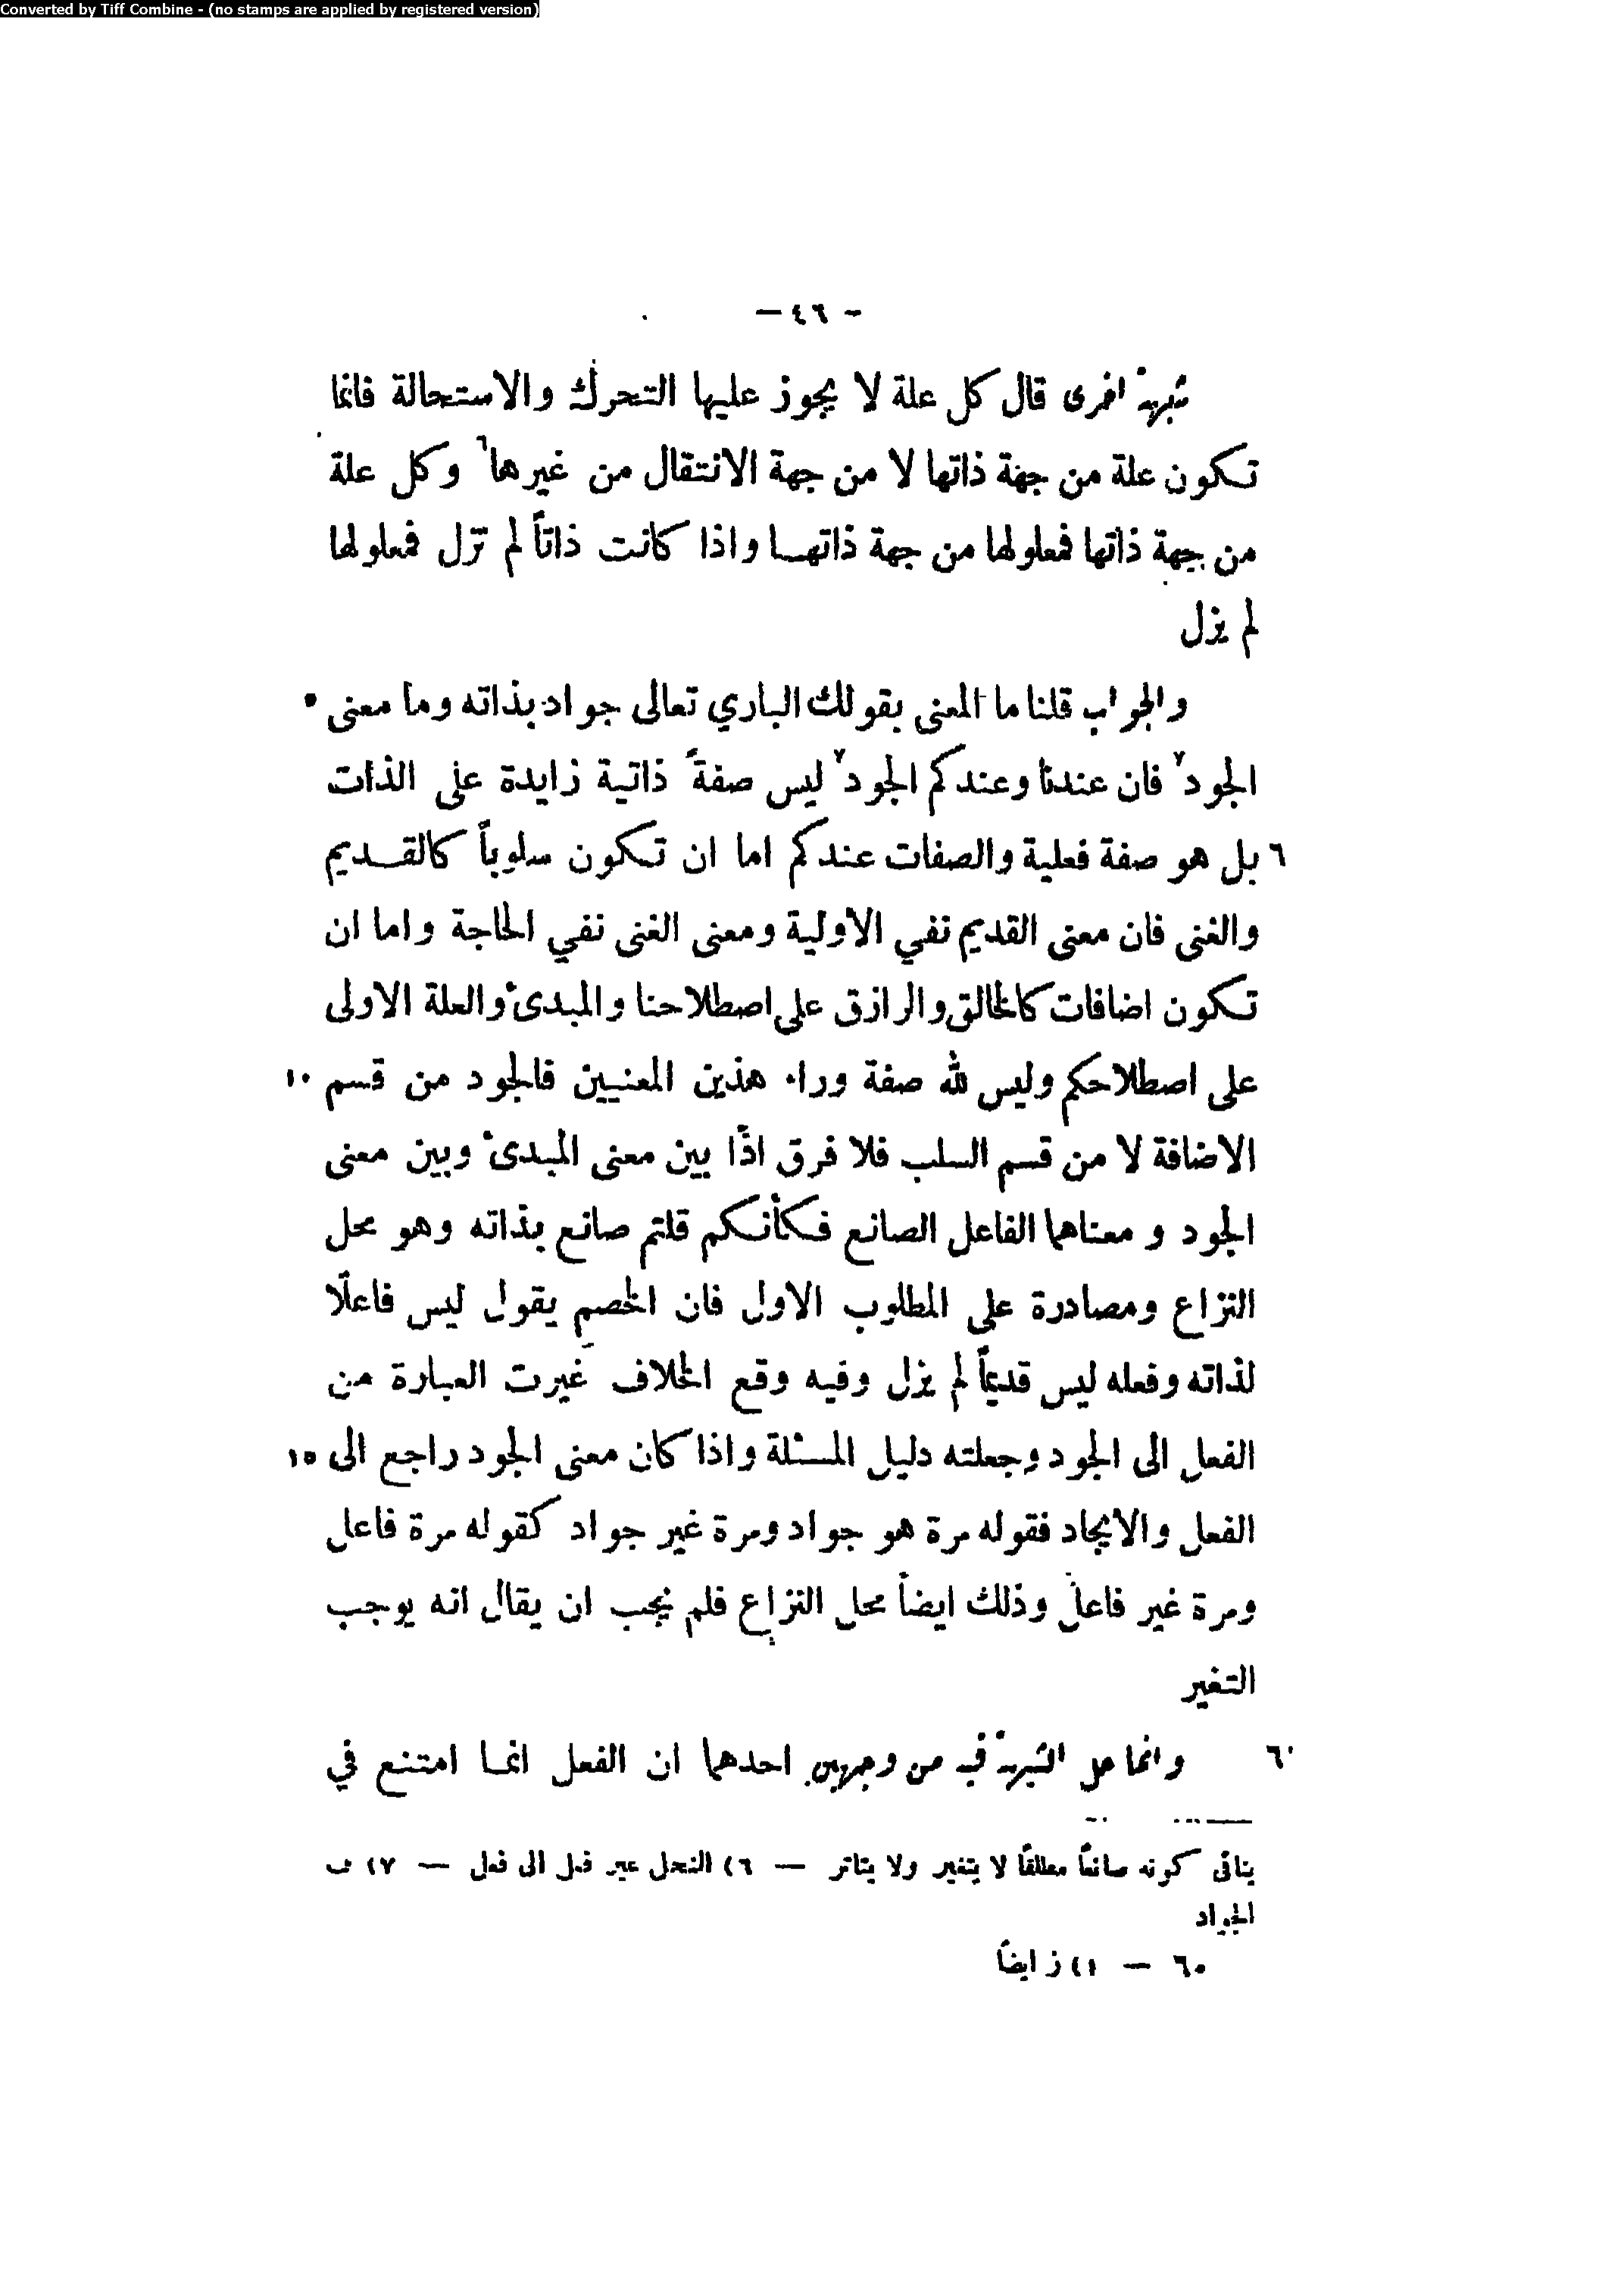 Converted by Tiff Combine - (no stamps are applied by registered version)
- ٤٦ -
شبهة اخرى قال كل علة لا يجوز عليها التحرك والاستحالة فانما
تكون علة من جهة ذاتها لا من جهة الانتقال من غيرها٦ وكل علة
من جهة ذاتها فمعلولها من جهة ذاتهـا واذا كانت ذاتاً لم تزل فمعلولها
لم يزل
والجواب قلنا ما المعنى بقولك الباري تعالى جواد بذاته وما معنى ٥
الجود٧ فان عندنا وعندكم الجود٧ ليس صفةً ذاتية زايدة على الذات
٦ بل هو صفة فعلية والصفات عندكم اما ان تكون سلوباً كالقـديم
والغنى فان معنى القديم نفي الاولية ومعنى الغنى نفي الحاجة واما ان
تكون اضافات كالخالق والرازق على اصطلاحنا والمبدئ والعلة الاولى
على اصطلاحكم وليس لله صفة وراء هذين المعنيين فالجود من قسم ١٠
الاضافة لا من قسم السلب فلا فرق اذًا بين معنى المبدئ وبين معنى
الجود و معناهما الفاعل الصانع فكأنكم قلتم صانع بذاته وهو محل
النزاع ومصادرة على المطلوب الاول فان الخصم يقول ليس فاعلًا
لذاته وفعله ليس قديماً لم يزل وفيه وقع الخلاف غيرت العبارة من
الفعل الى الجود وجعلته دليل المسئلة واذا كان معنى الجود راجع الى ١٥
الفعل والايجاد فقوله مرة هو جواد ومرة غير جواد كقوله مرة فاعل
ومرة غير فاعل وذلك ايضاً محل النزاع فلم يجب ان يقال انه يوجب
التغير
٦١ وانما حل الشبهة فيه من وجهين احدهما ان الفعل انمـا امتنع في
ينافى كونه صانعًا مطلقًا لا يتغير ولا يتاثر — ٦) النحل غير قبل الى فعل — ٧) ب
الجواد
٦٠ — ١) ز ايضاً